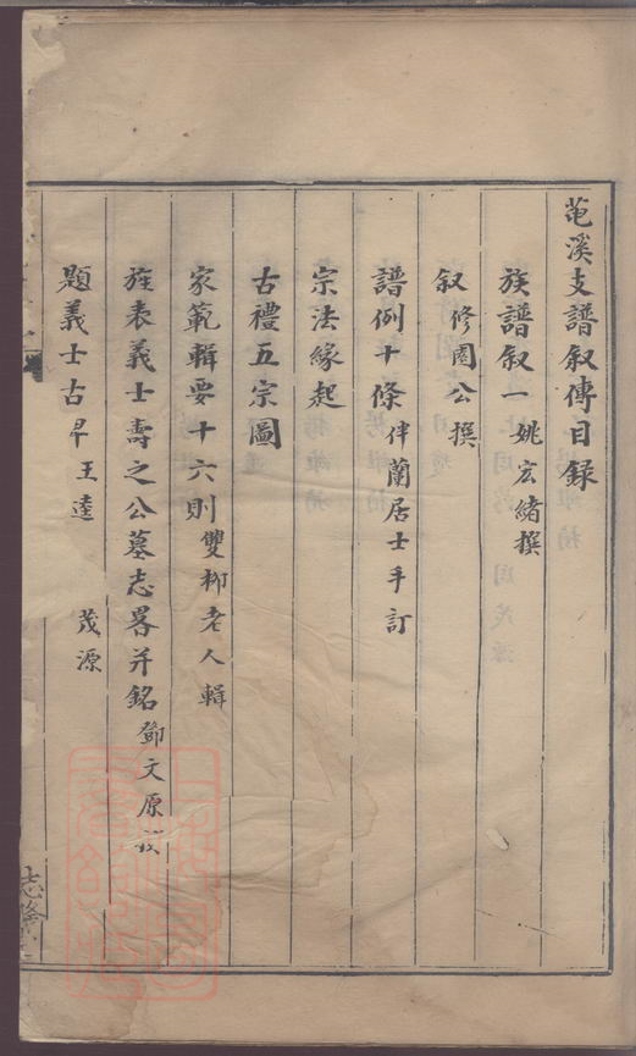 苞溪支譜叙傳目録
族譜叙一 姚宏緒撰
叙 修園公撰
譜例十條 伴蘭居士手訂
宗法緣起
古禮五宗圖
家範輯要十六則 雙栁老人輯
旌表義士壽之公墓志畧并銘 鄧文原
題義士古 王逵 茂源